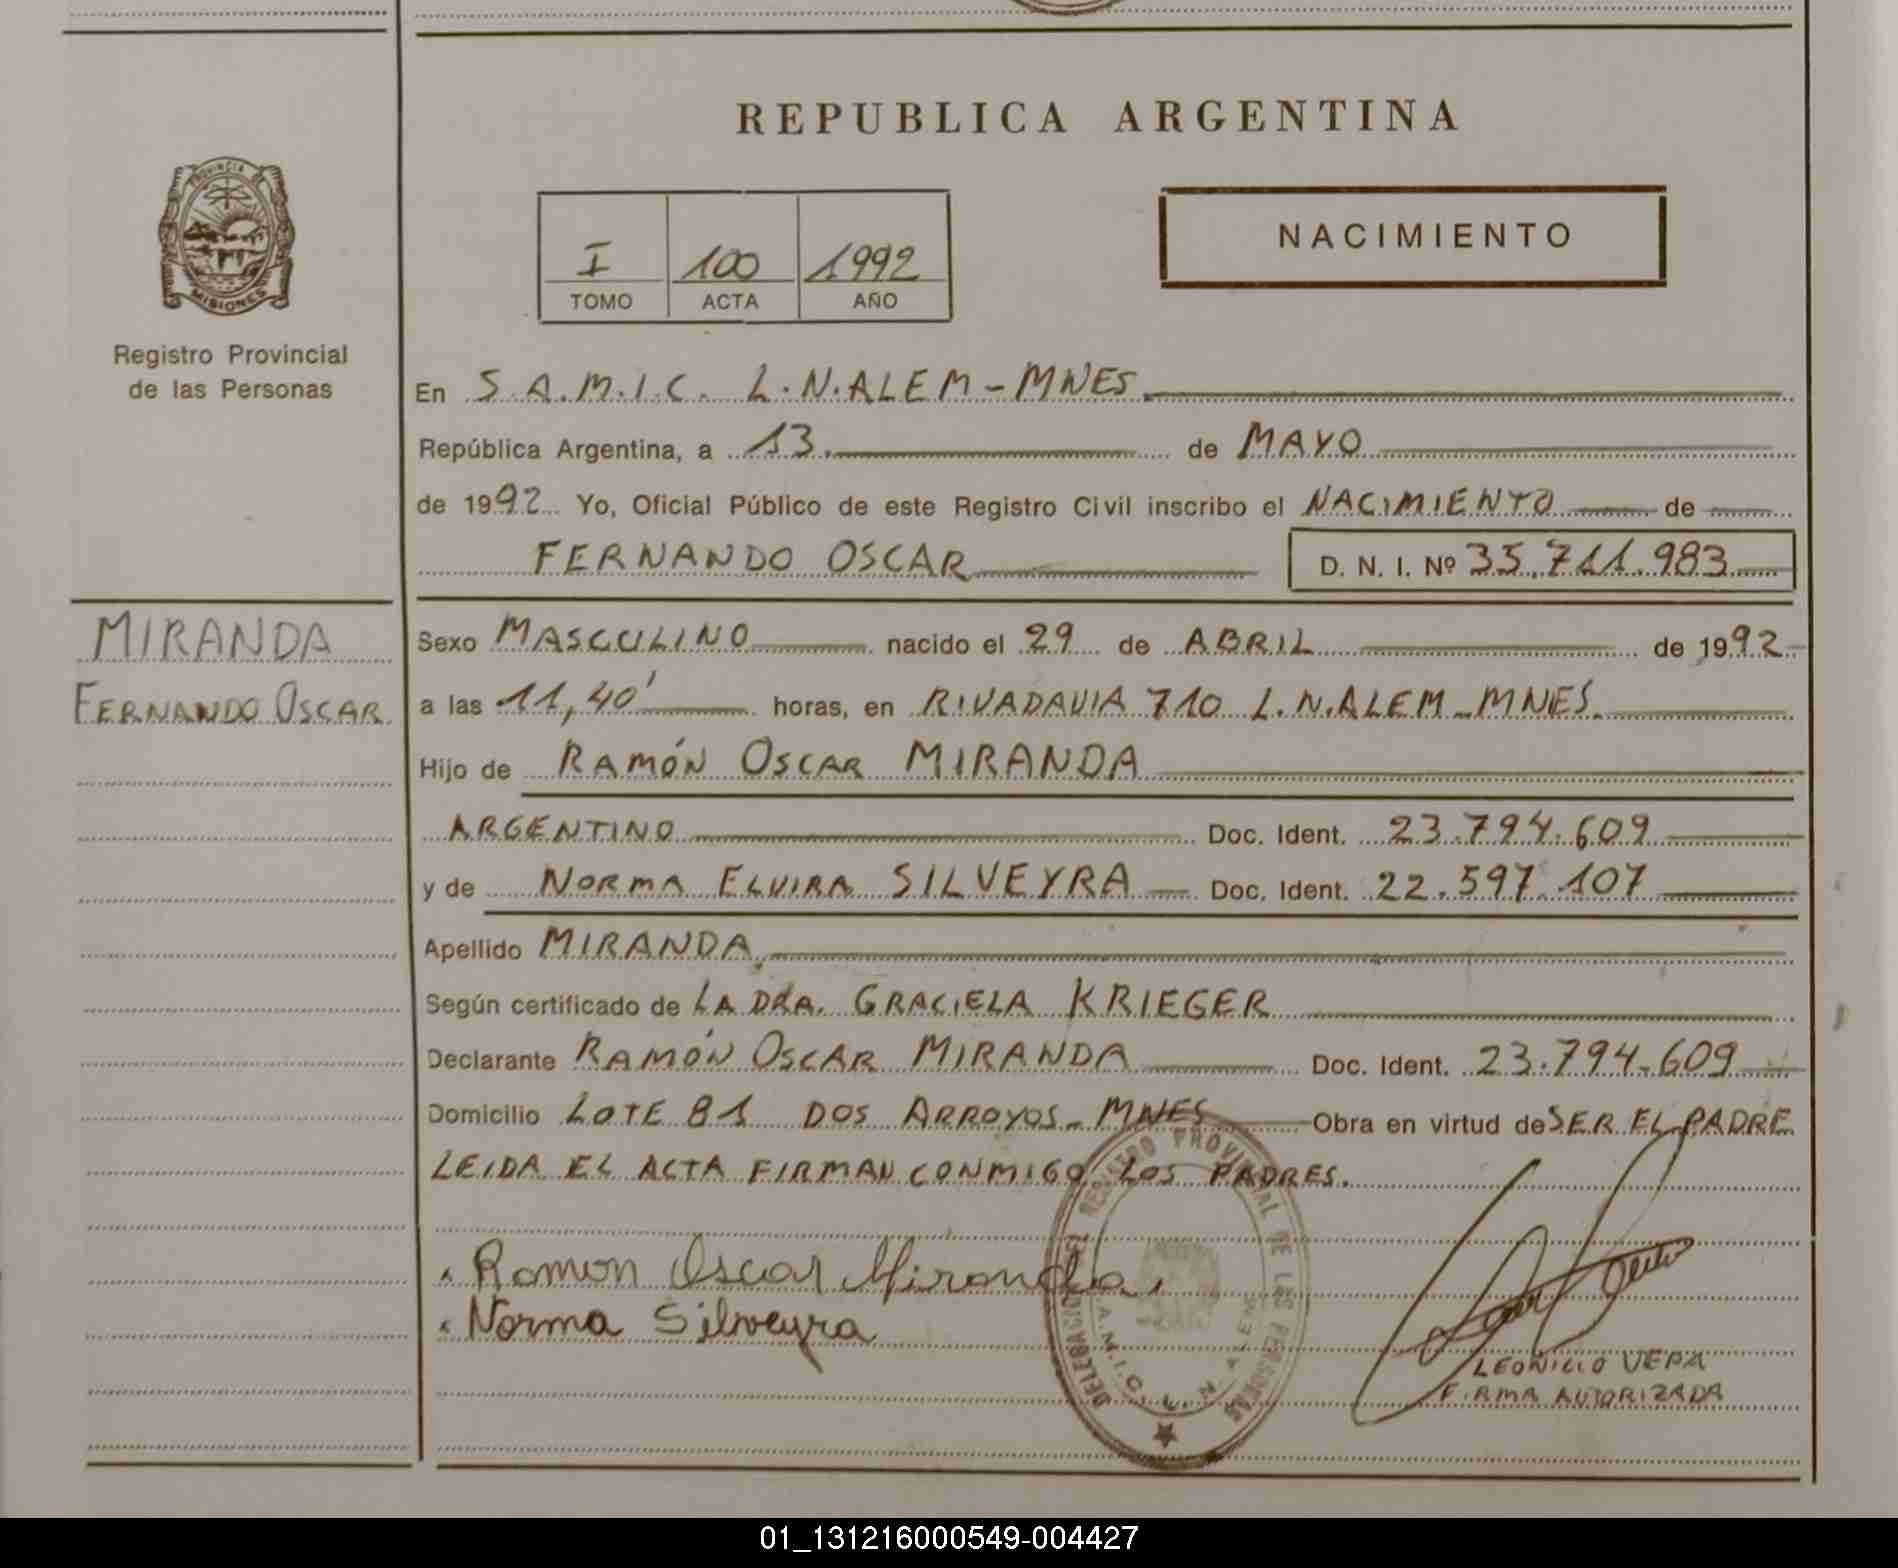 REPUBLICA ARGENTINA
PROVINCIA DE
MISIONES
Registro Provincial
de las Personas
I 100 1992
TOMO ACTA AÑO
NACIMIENTO
En S.A.M.I.C. L.N.ALEM-MNES.
República Argentina, a 13. de MAYO
de 1992 Yo, Oficial Público de este Registro Civil inscribo el NACIMIENTO de
FERNANDO OSCAR D. N. I. Nº 35.711.983
MIRANDA
FERNANDO OSCAR
Sexo MASCULINO nacido el 29 de ABRIL de 1992
a las 11,40' horas, en RIVADAVIA 710 L.N.ALEM-MNES.
Hijo de RAMÓN OSCAR MIRANDA
ARGENTINO Doc. Ident. 23.794.609
y de NORMA ELVIRA SILVEYRA Doc. Ident. 22.597.107
Apellido MIRANDA.
Según certificado de LA DRA. GRACIELA KRIEGER
Declarante RAMÓN OSCAR MIRANDA Doc. Ident. 23.794.609
Domicilio LOTE 81 DOS ARROYOS-MNES Obra en virtud de SER EL PADRE
LEIDA EL ACTA FIRMAN CONMIGO LOS PADRES.
Ramon Oscar Miranda
Norma Silveyra
REGISTRO PROVINCIAL DE LAS PERSONAS
DELEGACION
S.A.M.I.C. L.N. ALEM
FIRMA AUTORIZADA
01_131216000549-004427